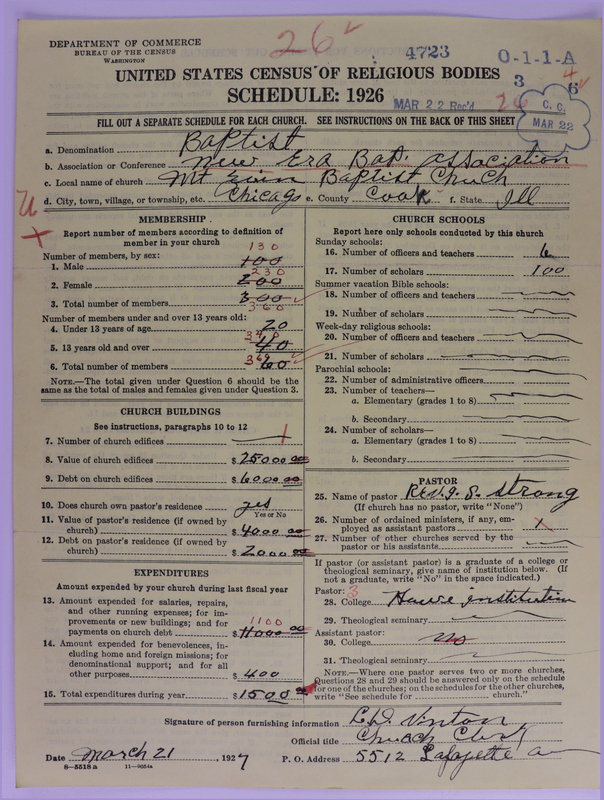 DEPARTMENT OF COMMERCE
BUREAU OF THE CENSUS
WASHINGTON
26
4723
O-1-1-A
3 6
4
UNITED STATES CENSUS OF RELIGIOUS BODIES
SCHEDULE: 1926
MAR 22 Rec'd
26
C. C.
MAR 22
FILL OUT A SEPARATE SCHEDULE FOR EACH CHURCH. SEE INSTRUCTIONS ON THE BACK OF THIS SHEET
a. Denomination Baptist
b. Association or Conference New Era Bap. Association
c. Local name of church Mt Baptist Church
d. City, town, village, or township, etc. Chicago e. County Cook f. State Ill
MEMBERSHIP
Report number of members according to definition of
member in your church
Number of members, by sex:
130
1. Male 100
230
2. Female 200
3. Total number of members 300
360
Number of members under and over 13 years old:
4. Under 13 years of age 20
340
5. 13 years old and over 40
360
6. Total number of members 60
NOTE.—The total given under Question 6 should be the
same as the total of males and females given under Question 3.
CHURCH BUILDINGS
See instructions, paragraphs 10 to 12
7. Number of church edifices 1
8. Value of church edifices $25000 00
9. Debt on church edifices $6000 00
10. Does church own pastor's residence yes
Yes or No
11. Value of pastor's residence (if owned by
church) $4000 00
12. Debt on pastor's residence (if owned by
church) $2000 00
EXPENDITURES
Amount expended by your church during last fiscal year
13. Amount expended for salaries, repairs,
and other running expenses; for im-
provements or new buildings; and for
1100
payments on church debt $11000 00
14. Amount expended for benevolences, in-
cluding home and foreign missions; for
denominational support; and for all
other purposes $400
15. Total expenditures during year $1500 00
CHURCH SCHOOLS
Report here only schools conducted by this church
Sunday schools:
16. Number of officers and teachers 6
17. Number of scholars 100
Summer vacation Bible schools:
18. Number of officers and teachers
19. Number of scholars
Week-day religious schools:
20. Number of officers and teachers
21. Number of scholars
Parochial schools:
22. Number of administrative officers
23. Number of teachers—
a. Elementary (grades 1 to 8)
b. Secondary
24. Number of scholars—
a. Elementary (grades 1 to 8)
b. Secondary
PASTOR
25. Name of pastor Rev. J. S. Strong
(If church has no pastor, write "None")
26. Number of ordained ministers, if any, em-
ployed as assistant pastors X
27. Number of other churches served by the
pastor or his assistants
If pastor (or assistant pastor) is a graduate of a college or
theological seminary, give name of institution below. (If
not a graduate, write "No" in the space indicated.)
Pastor: 3
28. College Howe Institution
29. Theological seminary
Assistant pastor:
30. College no
31. Theological seminary
NOTE.—Where one pastor serves two or more churches,
Questions 28 and 29 should be answered only on the schedule
for one of the churches; on the schedules for the other churches,
write "See schedule for church."
Signature of person furnishing information L. D. Vinton
Official title Church Clerk
Date March 21, 1927 P. O. Address 5512 Lafayette av
8—5518a 11—9034a